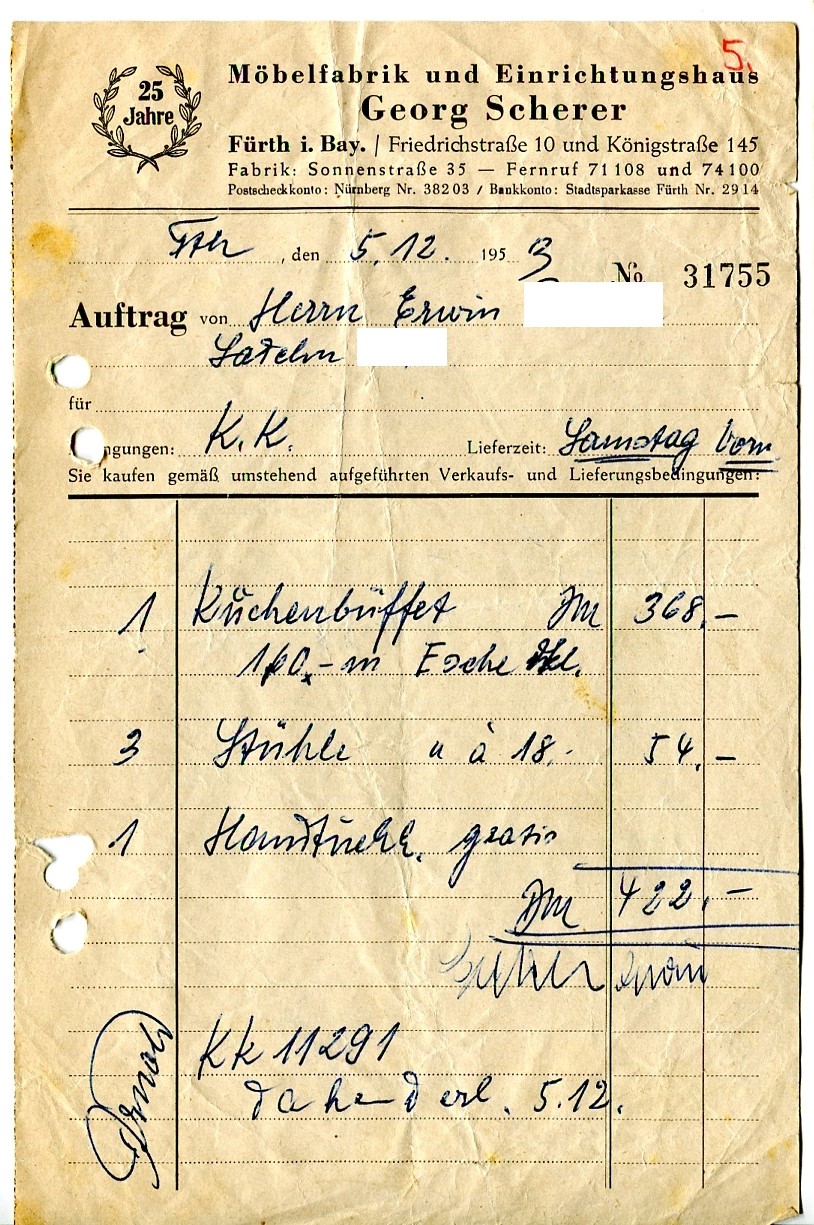 5.
25
Jahre
Möbelfabrik und Einrichtungshaus
Georg Scherer
Fürth i. Bay. / Friedrichstraße 10 und Königstraße 145
Fabrik: Sonnenstraße 35 — Fernruf 71108 und 74100
Postscheckkonto: Nürnberg Nr. 38203 / Bankkonto: Stadtsparkasse Fürth Nr. 2914
Fth, den 5.12. 1953
No 31755
Auftrag von Herrn Erwin
für
ngungen: K.K. Lieferzeit: Samstag Vorm
Sie kaufen gemäß umstehend aufgeführten Verkaufs- und Lieferungsbedingungen:
1 Küchenbüffet DM 368.-
160.- m Esche
3 Stühle " à 18.- 54.-
1 Handtuchh. gratis
DM 422.-
KK 11291
5.12.